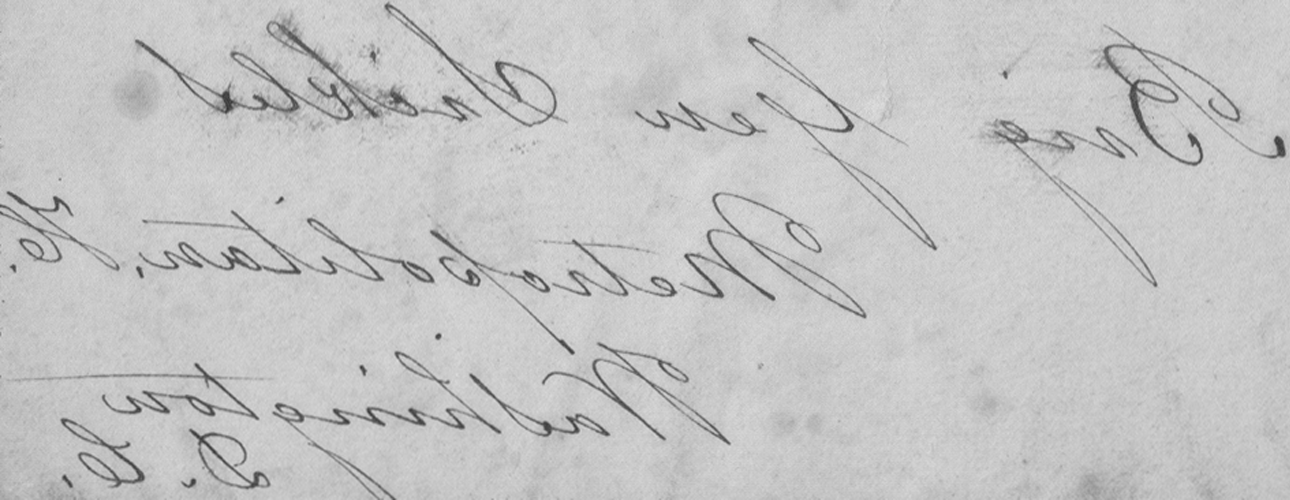 Brig Gen
Metropolitan,
Washington
D. C.